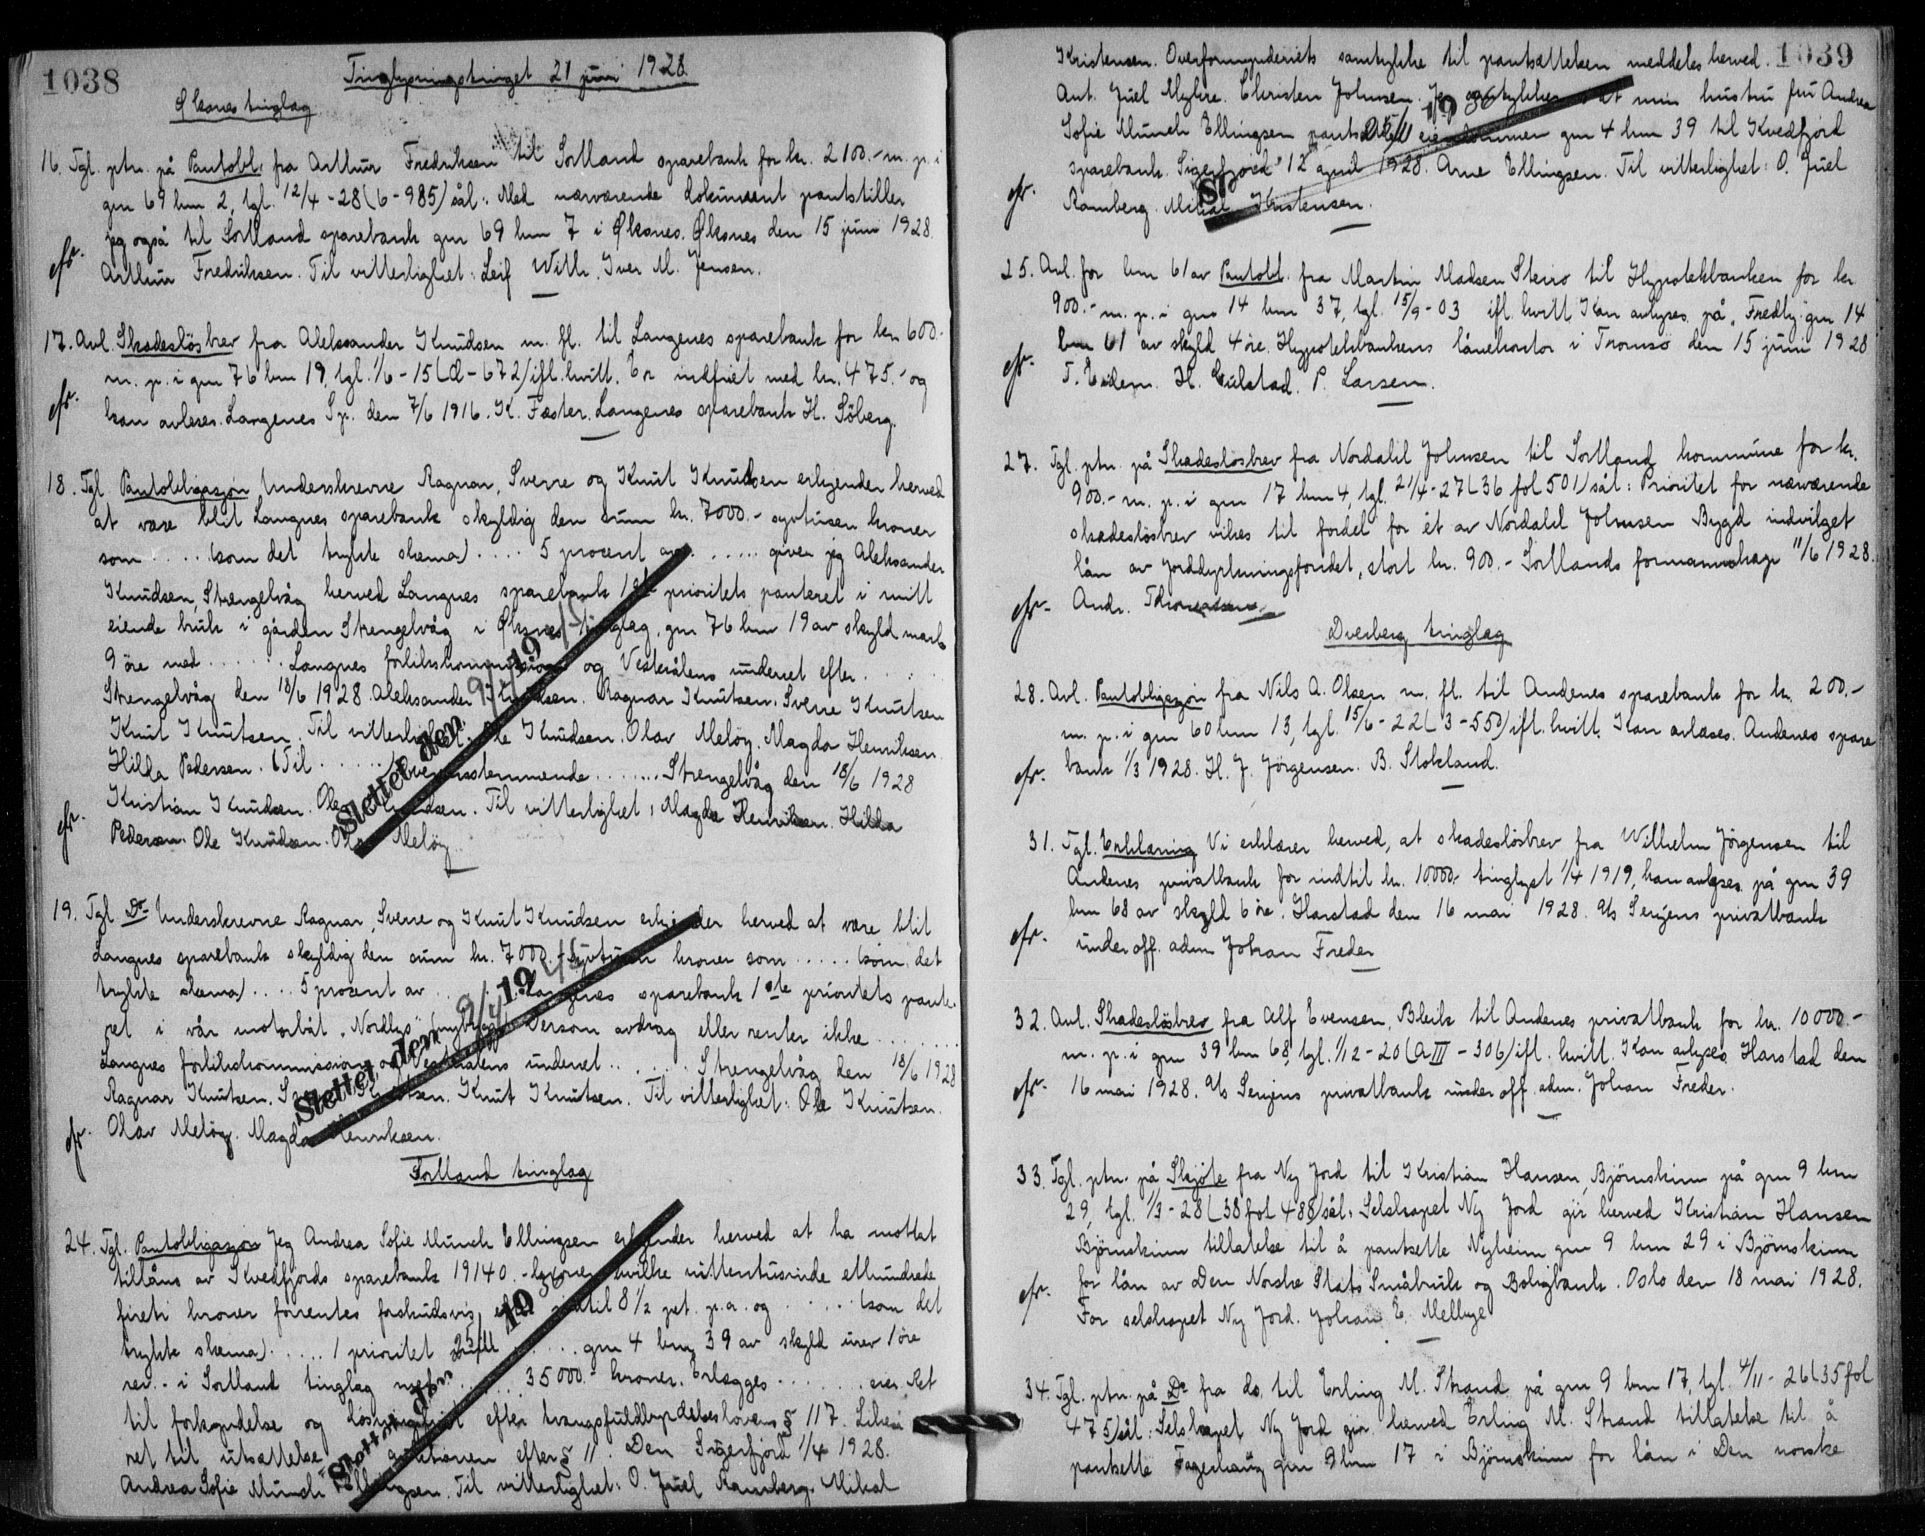 1038
Tinglysningstinget 21 juni 1928.
Øksnes tinglag
16. Tgl. ptn. på Pantobl. fra Arthur Fredriksen til Sortland sparebank for kr. 2100.- m. p. i
gnr 69 bnr 2, tgl. 12/4-28 (6-985) sål: Med nærværende dokument pantstiller
jeg også til Sortland sparebank gnr 69 bnr 7 i Øksnes. Øksnes den 15 juni 1928.
cfr. Arthur Fredriksen. Til vitterlighet: Leif With. Iver M. Jensen.
17. Avl. Skadeslösbrev fra Aleksander Knudsen m. fl. til Langenes sparebank for kr 600.-
m. p. i gnr 76 bnr 19, tgl. 1/6-15 (A-672) ifl. kvitt. Er indfriet med kr. 475.- og
cfr. kan avleses. Langenes Sp. den 7/6 1916. K. Fæster. Langenes sparebank H. Söberg.
18. Tgl. Pantobligasjon Underskrevne Ragnar, Sverre og Knut Knudsen erkjender herved
at være blit Langnes sparebank skyldig den sum kr. 7000.- syvtusen kroner
som .... (som det trykte skema) .... 5 procent av ...... giver jeg Aleksander
Knudsen, Strengelvåg herved Langnes sparebank 1st prioritets panteret i mitt
eiende bruk i gården Strengelvåg i Øksnes tinglag, gnr 76 bnr 19 av skyld mark
9 øre med ...... Langnes forlikskommission og Vesterålens underret efter .....
Strengelvåg den 18/6 1928 Aleksander Knudsen. Ragnar Knutsen. Sverre Knutsen
Knut Knutsen. Til vitterlighet: Ole Knudsen. Olav Meløy. Magda Henriksen.
Hilda Pedersen. (Til ...... overensstemmende ....... Strengelvåg den 18/6 1928
Kristian Knudsen. Ole Knudsen. Til vitterlighet: Magda Henriksen. Hilda
cfr. Pedersen. Ole Knudsen. Olav Meløy
Slettet den 9/4 19
19. Tgl. Do Underskrevne Ragnar, Sverre og Knut Knudsen erkjender herved at være blit
Langnes sparebank skyldig den sum kr. 7000.- syvtusen kroner som ..... (som det
trykte skema) .... 5 procent av ..... Langenes sparebank 1ste prioritets pante-
ret i vår motorbåt "Nordlys" (nybygg) Dersom avdrag eller renter ikke .......
Langnes forlikskommission og Vesterålens underret ...... Strengelvåg den 18/6 1928
Ragnar Knutsen. Sverre Knutsen. Knut Knutsen. Til vitterlighet: Ole Knutsen.
cfr. Olav Meløy. Magda Henriksen.
Slettet den 9/4 19
Sortland tinglag
24. Tgl. Pantobligasjon Jeg Andrea Sofie Munch Ellingsen erkjender herved at ha mottat
tillåns av Kvedfjords sparebank 19140.- kroner hvilke nittentusinde ethundrede
fireti kroner forrentes forskudsvis med indtil 8 1/2 pct. p.a. og ...... (som det
trykte skema) ..... 1 prioritet ...... gnr 4 bnr 39 av skyld urev 1 øre
rev. - i Sortland tinglag med ...... 35000.- kroner. Erlægges ........ Ret
til forkyndelse og efter tvangsfuldbyrdelseslovens § 117. Likeså
ret til utsættelse auktionen efter § 11. Den Sigerfjord 1/4 1928.
Andrea Sofie Munch Ellingsen. Til vitterlighet: O. Juel Ramberg. Mikal
Slettet den 25/11 1936
1039
Kristensen. Overformynderiets samtykke til pantsættelsen meddeles herved.
Ant. Juel Myhre. Christen Johnsen. Jeg samtykker i at min hustru fru Andrea
Sofie Munch Ellingsen pantsætter eiendommen gnr 4 bnr 39 til Kvedfjord
sparebank. Sigerfjord 12 april 1928. Arne Ellingsen. Til vitterlighet: O. Juel
cfr. Ramberg. Mikal Kristensen.
25/11 1936
25. Avl. for bnr 61 av Pantobl. fra Martin Madsen Steiro til Hypotekbanken for kr
900.- m. p. i gnr 14 bnr 37, tgl. 15/9-03 ifl. kvitt. Kan avlyses på "Fredly" gnr 14
bnr 61 av skyld 4 øre. Hypotekbankens lånekontor i Tromsø den 15 juni 1928
cfr. T. Eidem. H. Gulstad. P. Larsen.
27. Tgl. ptn. på Skadeslösbrev fra Nordahl Johnsen til Sortland kommune for kr.
900.- m. p. i gnr 17 bnr 4, tgl. 21/4-27 (36 fol 501) sål: Prioritet for nærværende
skadeslösbrev vikes til fordel for ét av Nordahl Johnsen Bygd indvilget
lån av jorddyrkningsfondet, stort kr. 900.- Sortlands formannskap 11/6 1928.
cfr. Andr. Thomassen
Dverberg tinglag
28. Avl. Pantobligasjon fra Nils A. Olsen m. fl. til Andenes sparebank for kr. 200.-
m. p. i gnr 60 bnr 13, tgl. 15/6-22 (3-550) ifl. kvitt. Kan avlæses. Andenes spare
cfr. bank 1/3 1928. H. J. Jörgensen. B. Stokland.
31. Tgl. Erklæring Vi erklærer herved, at skadeslösbrev fra Wilhelm Jörgensen til
Andenes privatbank for indtil kr. 10000.- tinglyst 1/4 1919, kan avlyses på gnr 39
bnr 68 av skyld 6 øre. Harstad den 16 mai 1928. A/s Senjens privatbank
cfr. under off. adm. Johan Freder
32. Avl. Skadeslösbrev fra Alf Evensen, Bleik til Andenes privatbank for kr. 10000.-
m. p. i gnr 39 bnr 68, tgl. 1/12-20 (A III-306) ifl. kvitt. Kan avlyses. Harstad den
cfr. 16 mai 1928. A/s Senjens privatbank under off. adm. Johan Freder.
33. Tgl. ptn. på Skjöte fra Ny Jord til Kristian Hansen, Björnskinn på gnr 9 bnr
29, tgl. 1/3-28 (38 fol 488) sål: Selskapet Ny Jord gir herved Kristian Hansen
Björnskinn tillatelse til å pantsette Nyheim gnr 9 bnr 29 i Björnskinn
cfr. for lån av Den Norske Stats Småbruk og Boligbank. Oslo den 18 mai 1928.
For selskapet Ny Jord. Johan E. Mellbye
34. Tgl. ptn. på Do fra do. til Erling M. Strand på gnr 9 bnr 17, tgl. 4/11-26 (35 fol
475) sål: Selskapet Ny Jord gir herved Erling M. Strand tillatelse til å
pantsette Fagerhaug gnr 9 bnr 17 i Björnskinn for lån i Den norske